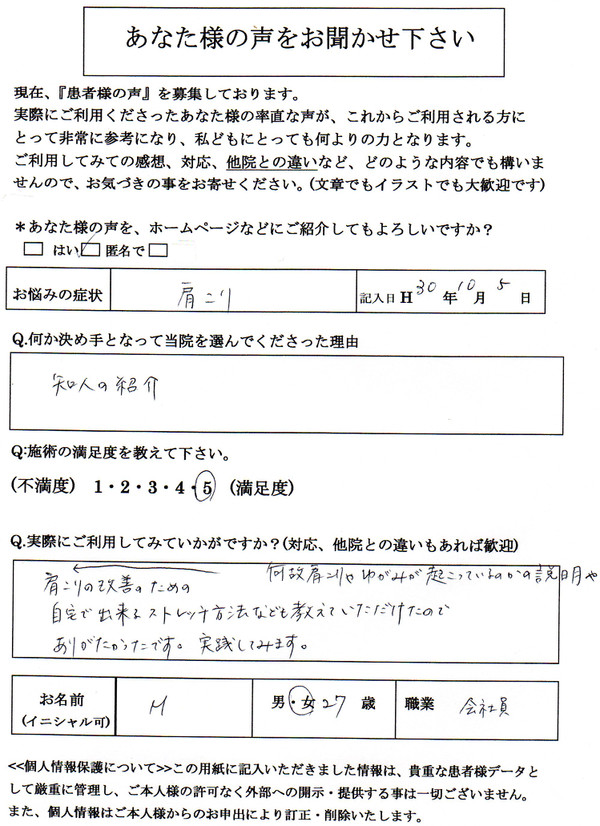 あなた様の声をお聞かせ下さい
現在、『患者様の声』を募集しております。
実際にご利用くださったあなた様の率直な声が、これからご利用される方に
とって非常に参考になり、私どもにとっても何よりの力となります。
ご利用してみての感想、対応、他院との違いなど、どのような内容でも構いま
せんので、お気づきの事をお寄せください。(文章でもイラストでも大歓迎です)
＊あなた様の声を、ホームページなどにご紹介してもよろしいですか？
□ はい □ 匿名で □
お悩みの症状 肩こり 記入日 H 30 年 10 月 5 日
Q.何か決め手となって当院を選んでくださった理由
知人の紹介
Q:施術の満足度を教えて下さい。
(不満度) 1・2・3・4・5 (満足度)
Q.実際にご利用してみていかがですか？(対応、他院との違いもあれば歓迎)
何故肩こりやゆがみが起こっているのかの説明や
肩こりの改善のための
自宅で出来るストレッチ方法なども教えていただけたので
ありがたかったです。実践してみます。
お名前 M 男・女 27 歳 職業 会社員
(イニシャル可)
<<個人情報保護について>>この用紙に記入いただきました情報は、貴重な患者様データと
して厳重に管理し、ご本人様の許可なく外部への開示・提供する事は一切ございません。
また、個人情報はご本人様からのお申出により訂正・削除いたします。